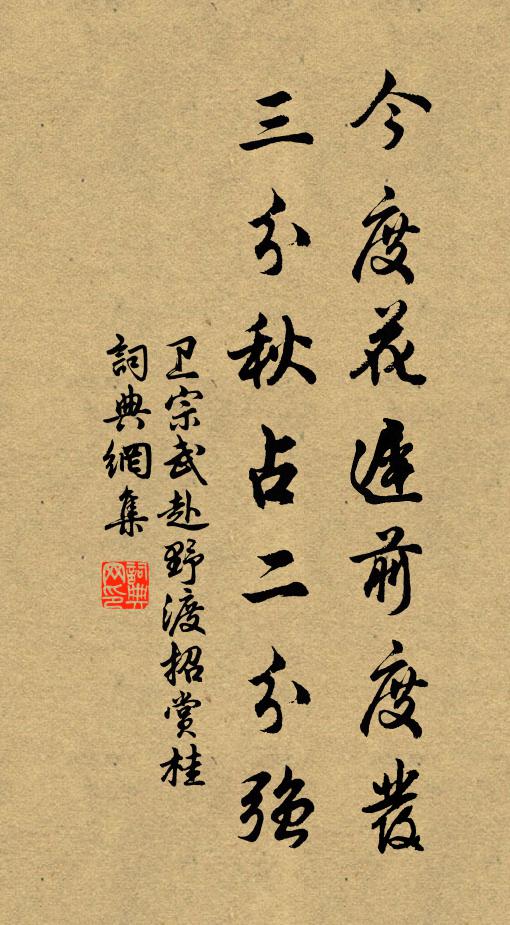 今度花遲前度發
三分秋占二分強
卫宗武赴野渡招赏桂
詞典網集
詞典
网印